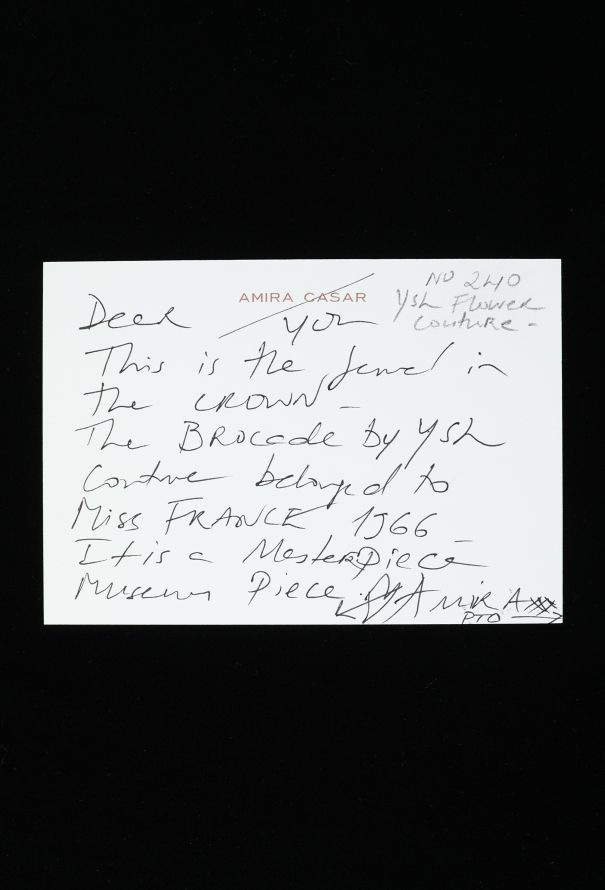 AMIRA CASAR
No 240
YSL Flower
Couture -
Dear you
This is the Jewel in
the CROWN -
The BROCADE by YSL
Couture belonged to
Miss FRANCE 1966 -
It is a MasterPiece
Museum Piece.
AmiRA xxx
PTO